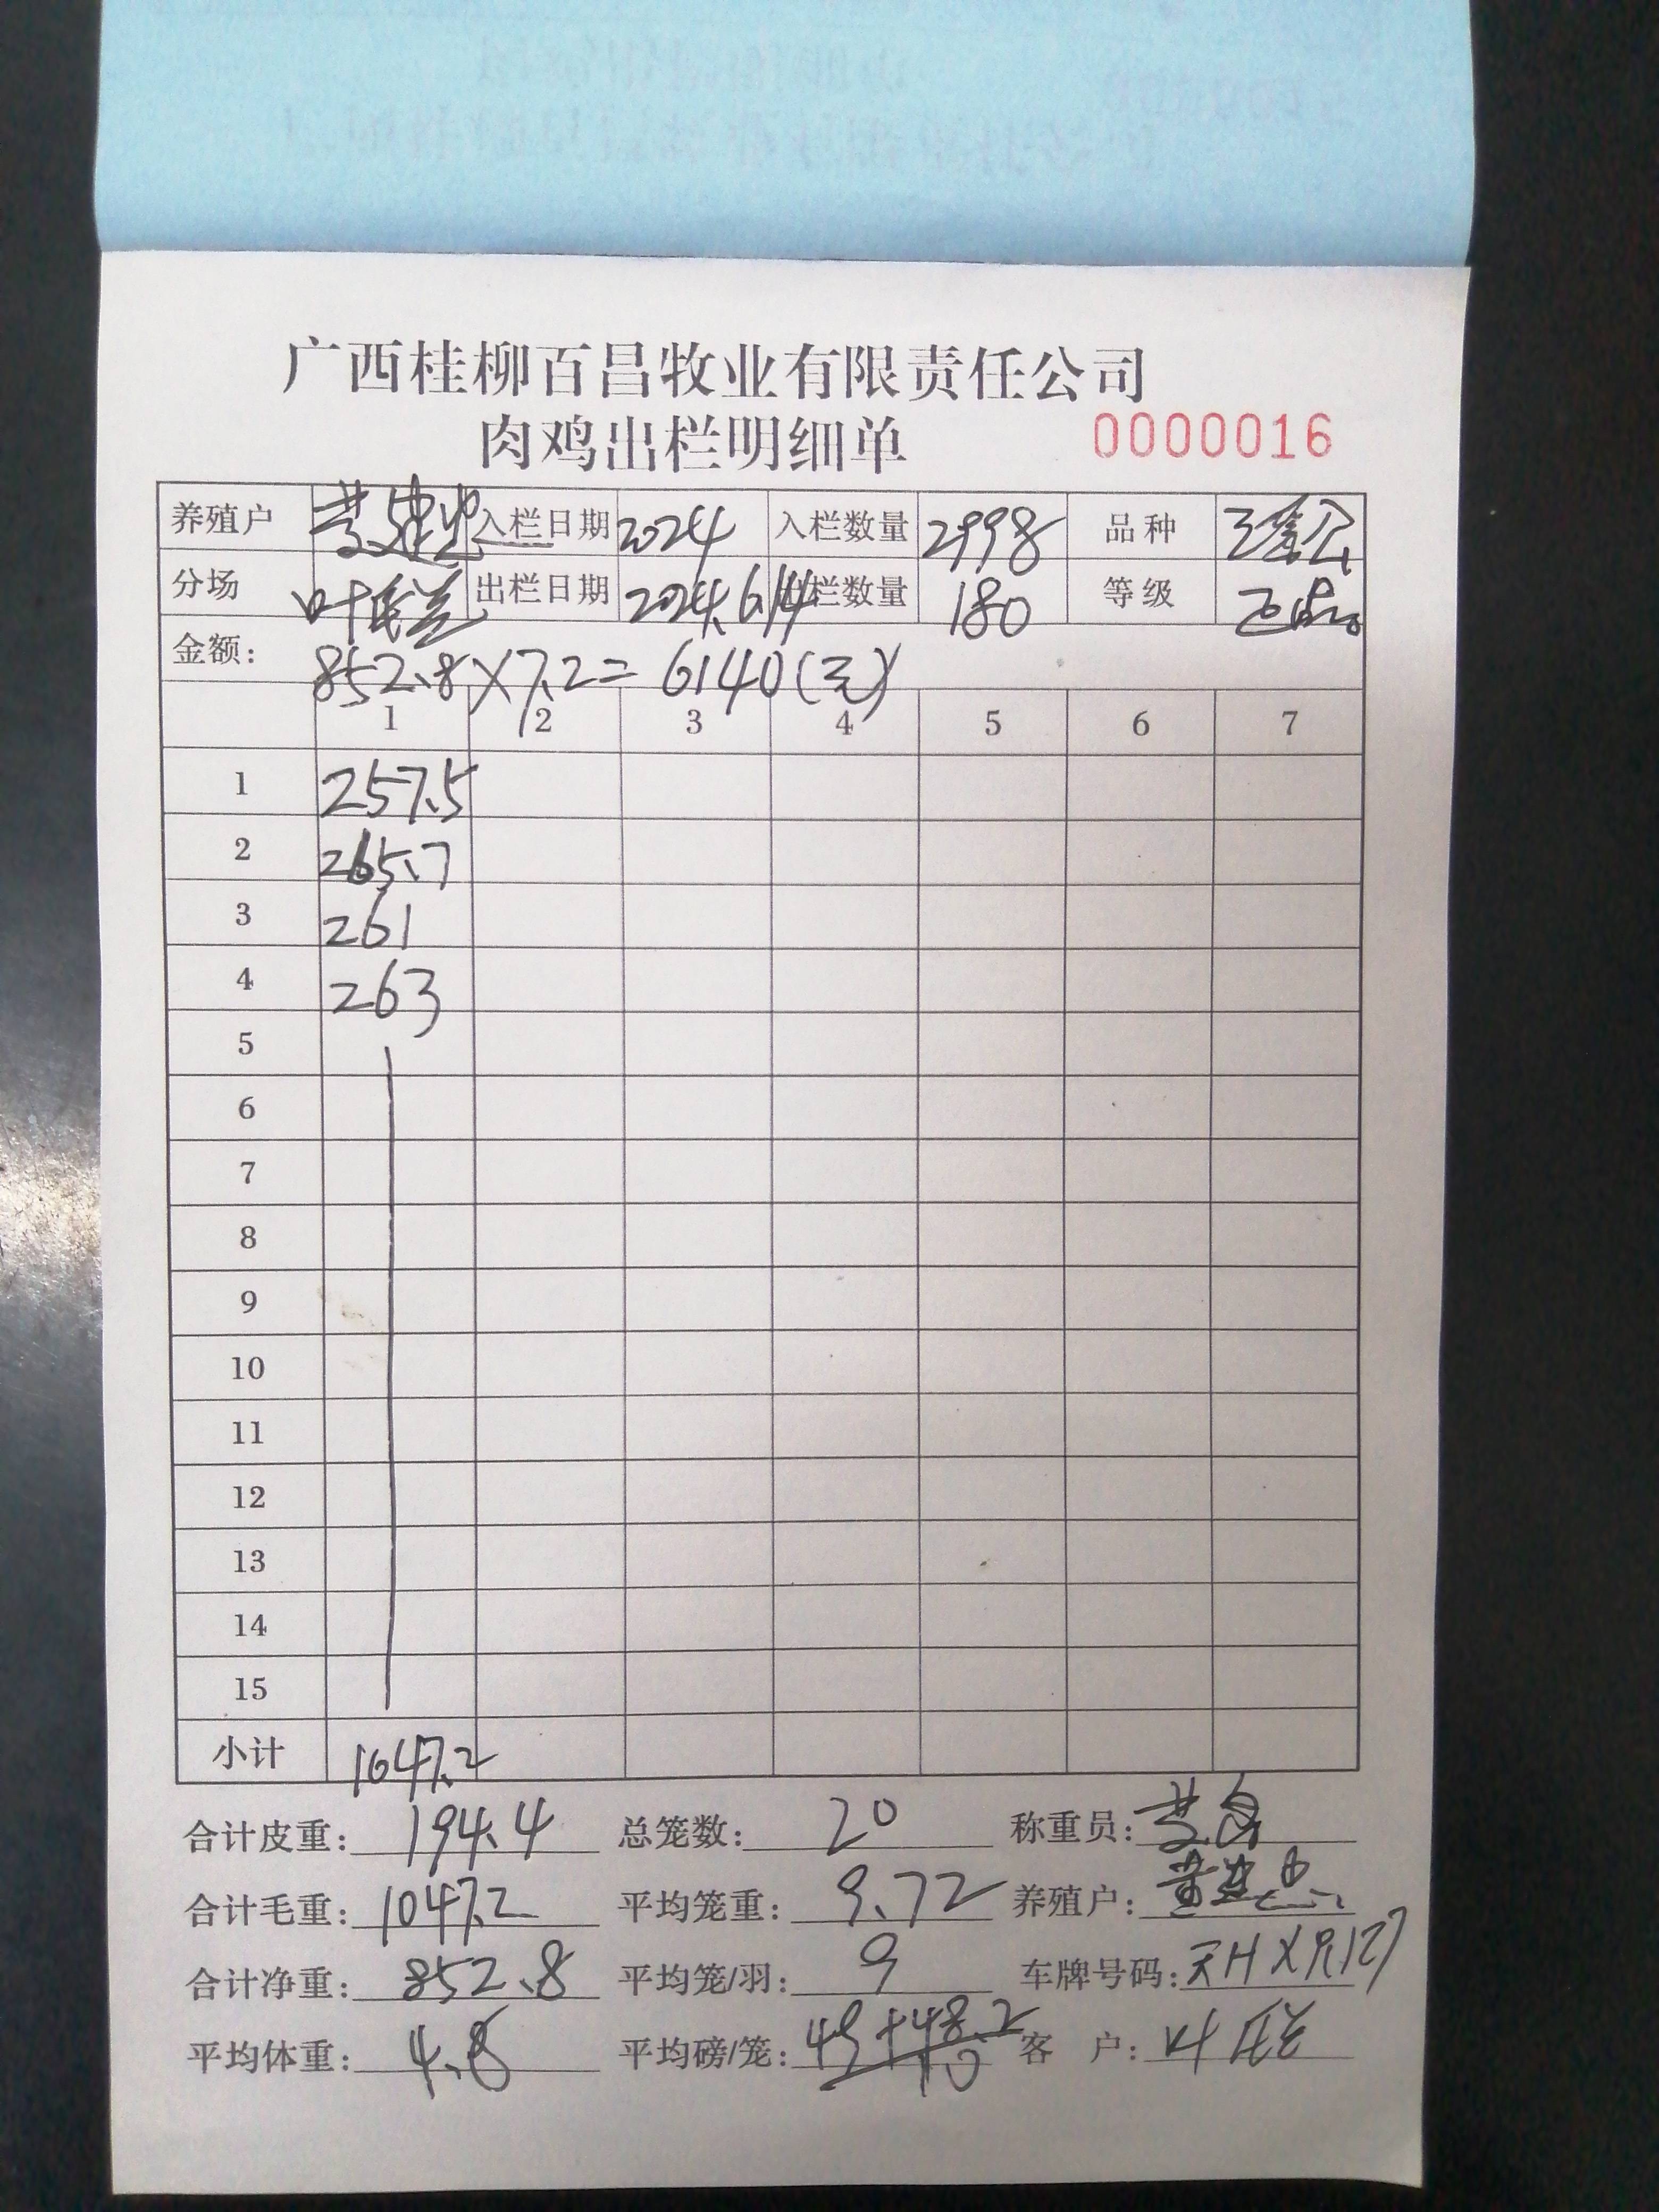 广西桂柳百昌牧业有限责任公司
肉鸡出栏明细单 0000016
养殖户 入栏日期 2024 入栏数量 2998 品种
分场 出栏日期 2024.6.14 栏数量 180 等级 正品
金额: 852.8×7.2= 6140(元)
1 2 3 4 5 6 7
1 257.5
2 265.7
3 261
4 263
5
6
7
8
9
10
11
12
13
14
15
小计 1047.2
合计皮重: 194.4 总笼数: 20 称重员:
合计毛重: 1047.2 平均笼重: 9.72 养殖户:
合计净重: 852.8 平均笼/羽: 9 车牌号码:
平均体重: 4.8 平均磅/笼: 客 户: